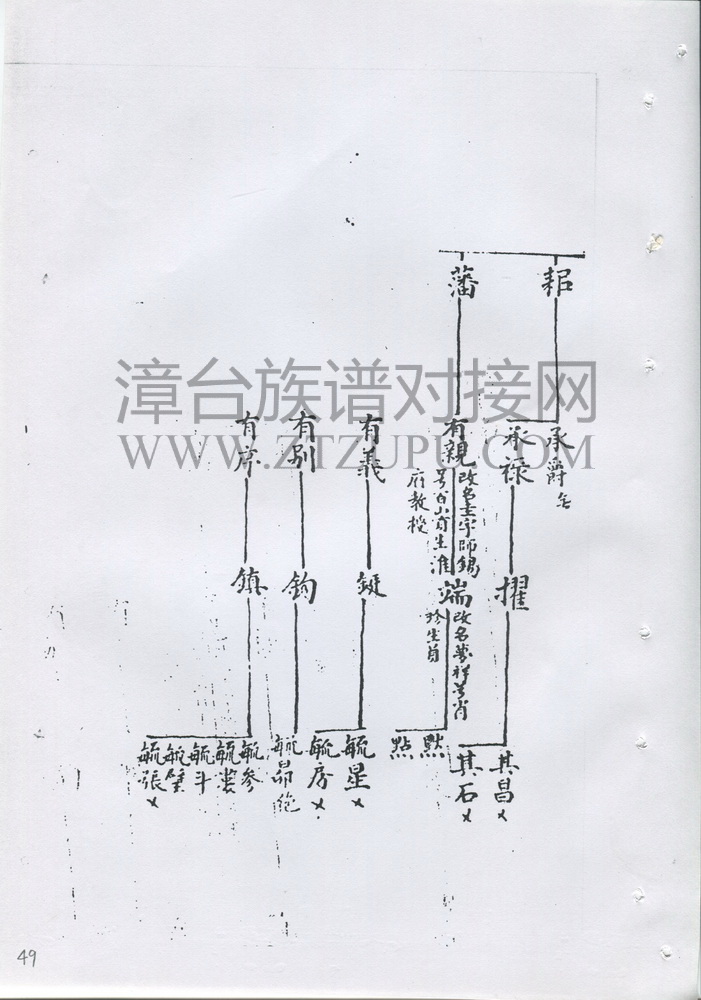 耜
藩
承爵
承祿
有親 改名主字師錫
号白山貢生淮
府教授
有義
有別
有序
擢
端 改名夢祥号肖
珍生員
鋌
鈞
鎮
其昌
其石
默
點
毓星
毓房
毓昴 绝
毓參
毓婁
毓斗
毓璧
毓張
漳台族谱对接网
WWW.ZTZUPU.COM
49